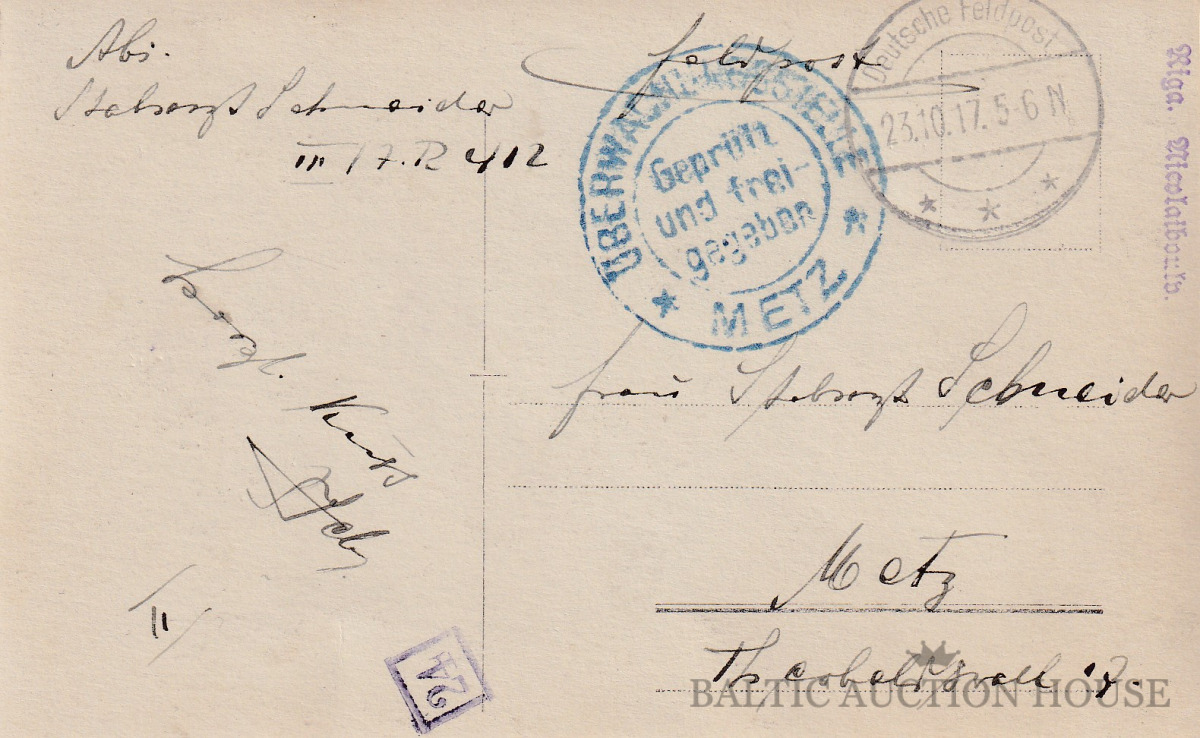 Abs.
Stabsarzt Schneider
III / J. R 412
Feldpost
Deutsche Feldpost
23.10.17. 5-6 N
* * *
ÜBERWACHUNGSSTELLE
Geprüft
und frei-
gegeben
* METZ *
Riga.
Frau Stabsarzt Schneider
Metz
Theobaldswall 17.
Kuß
II
24
BALTIC AUCTION HOUSE